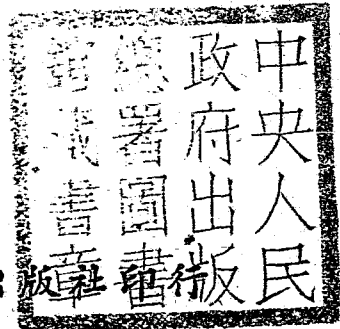 中央人民
政府出版
總署圖書
書章
版社印行